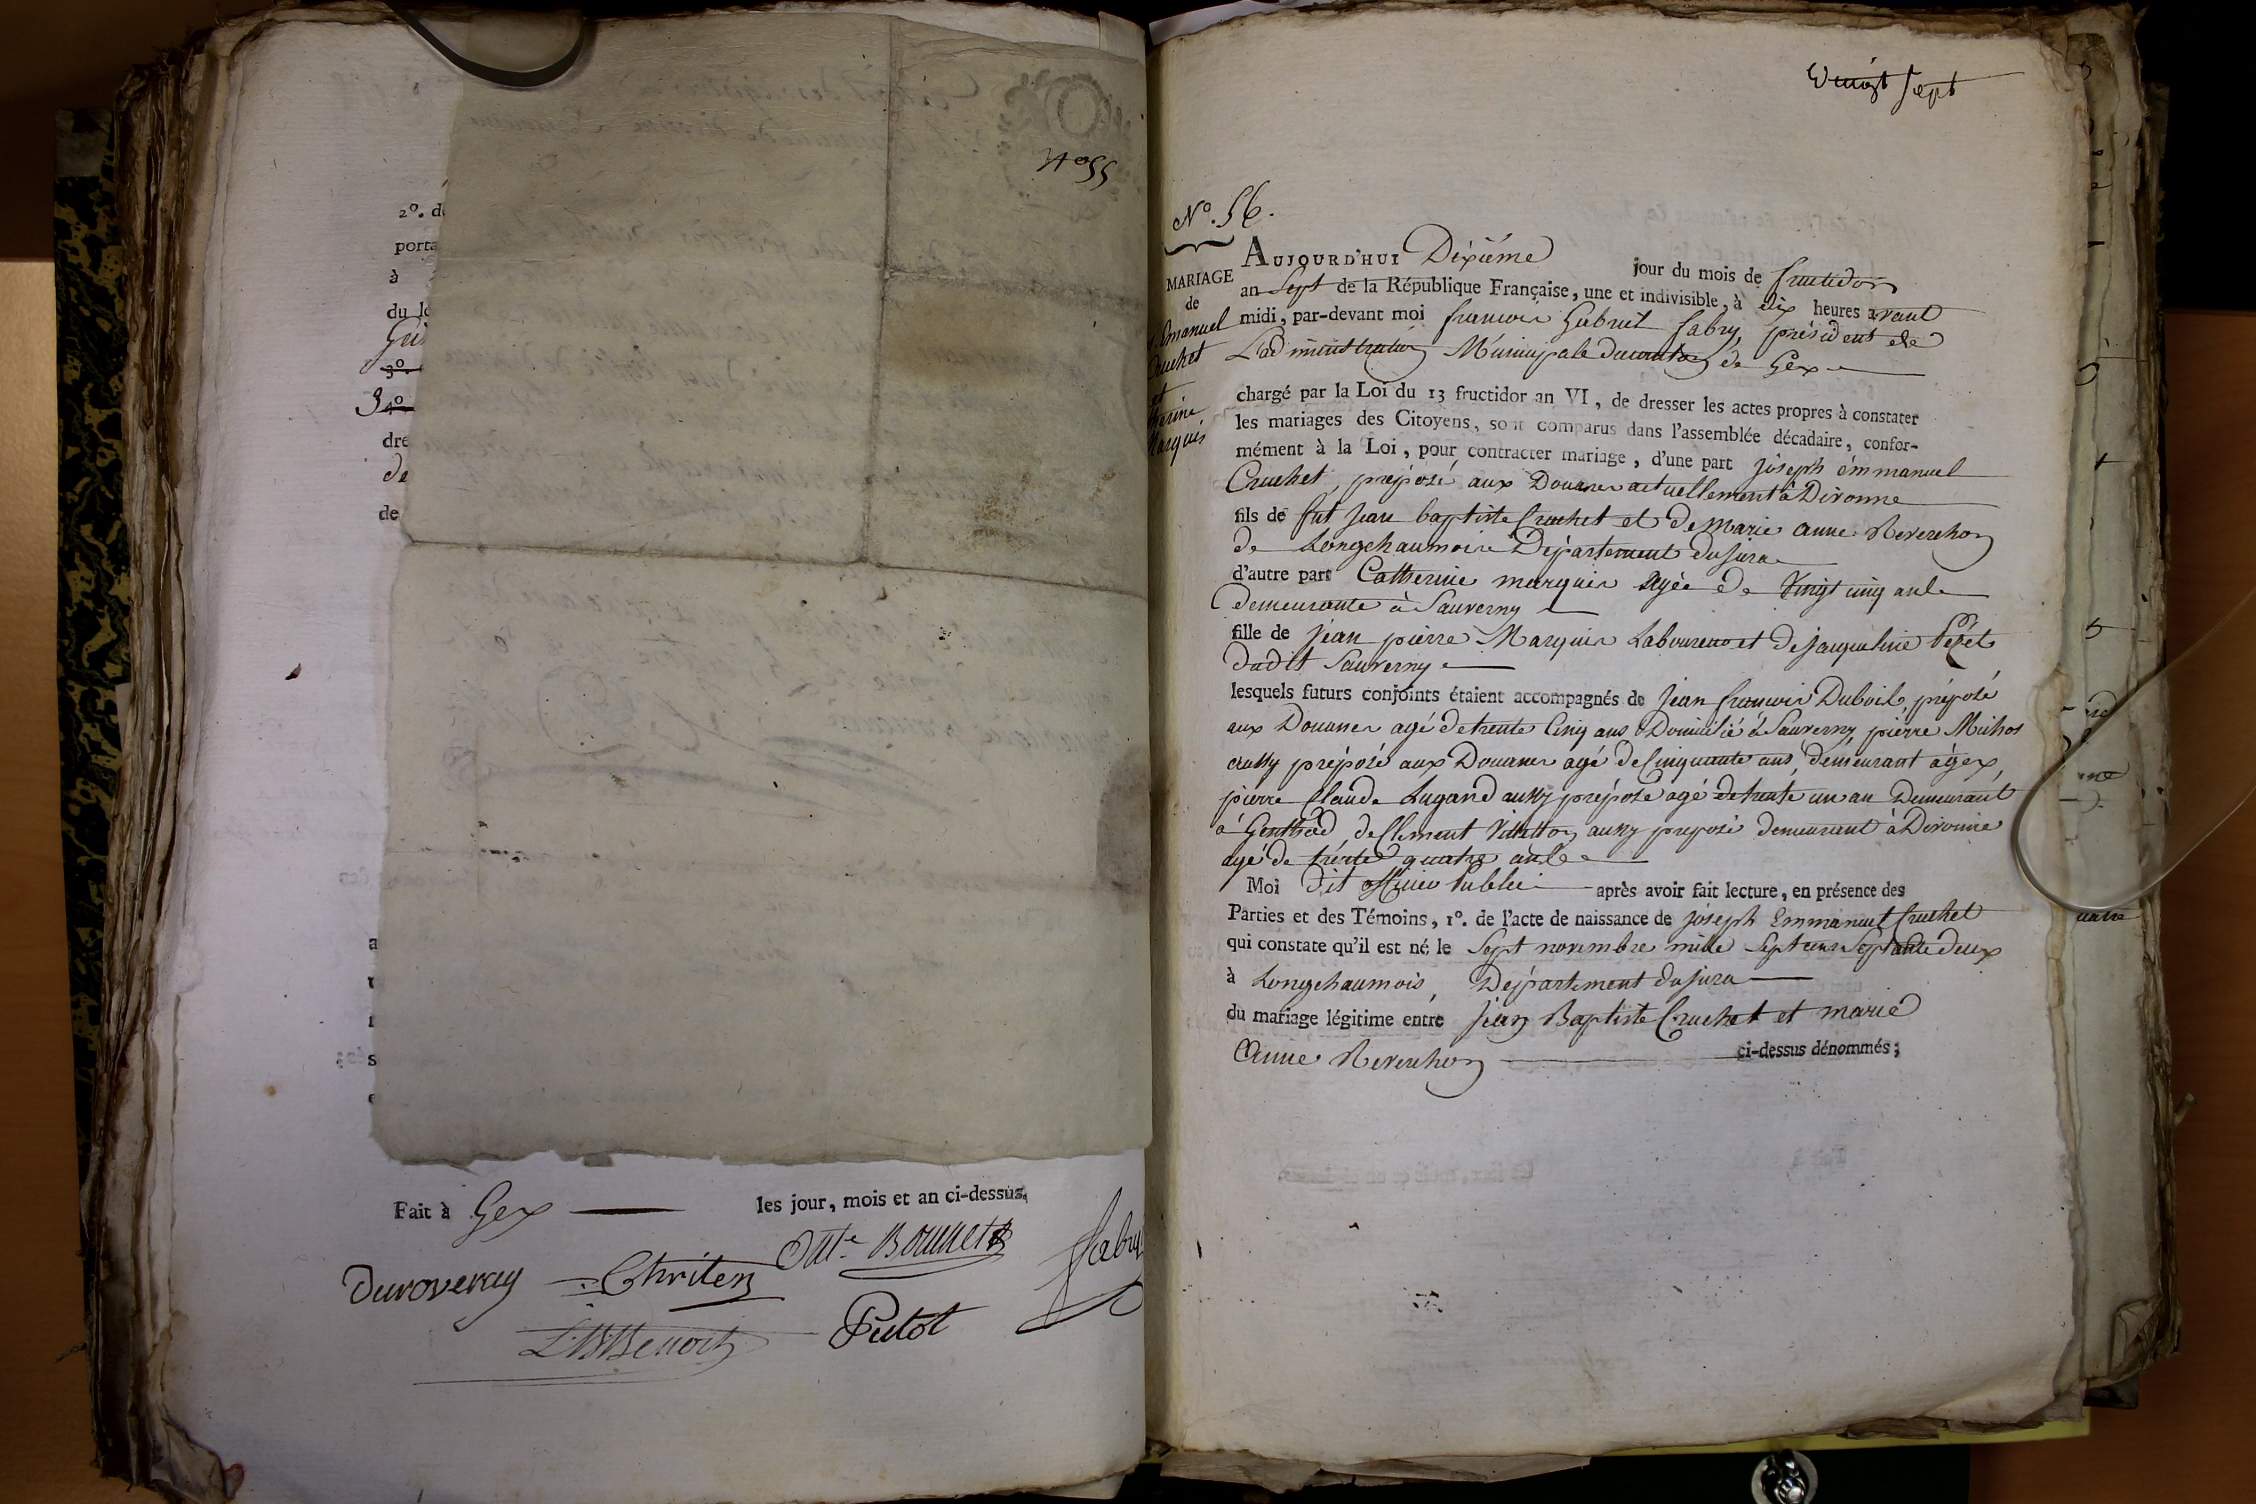 N° 55
2°. de
porta
à
du lé
3°.
3 4°
dre
de
de
Fait à Gex les jour, mois et an ci-dessus.
Duroveray Chriten Bonnet Fabry
Benoit Putot
Vingt Sept
N°. 56.
MARIAGE
de
Emmanuel
Cruchet
et
Catherine
Marquis
AUJOURD'HUI Dixiéme jour du mois de fructidor
an Sept de la République Française, une et indivisible, à dix heures avant
midi, par-devant moi francois Gabriel fabry, président de
L'administration Municipale du canton de Gex
chargé par la Loi du 13 fructidor an VI, de dresser les actes propres à constater
les mariages des Citoyens, sont comparus dans l'assemblée décadaire, confor-
mément à la Loi, pour contracter mariage, d'une part joseph émmanuel
Cruchet, préposé aux Douanes actuellement à Divonne
fils de fut jean baptiste Cruchet et de Marie anne Reverchon
de Longchaumois Département du jura
d'autre part Catherine marquis agée de vingt cinq ans
demeurante à Sauverny
fille de jean pierre Marquis Laboureur et de jaqueline Pépet
dudit Sauverny
lesquels futurs conjoints étaient accompagnés de jean francois Dubois, préposé
aux Douanes agé de trente Cinq ans Domicilié à Sauverny, pierre Michos
aussy préposé aux Douanes agé de Cinquante ans, demeurant à gex,
pierre Claude Lugand aussy préposé agé de trente un an Demeurant
à Genthod, de Clement aussy preposé demeurant à Divonne
agé de trente quatre ans
Moi dit officier Public après avoir fait lecture, en présence des
Parties et des Témoins, 1°. de l'acte de naissance de joseph Emmanuel Cruchet
qui constate qu'il est né le Sept novembre mille Sept cens Septante deux
à Longchaumois, Département du jura
du mariage légitime entre jean Baptiste Cruchet et marie
Anne Reverchon ci-dessus dénommés;